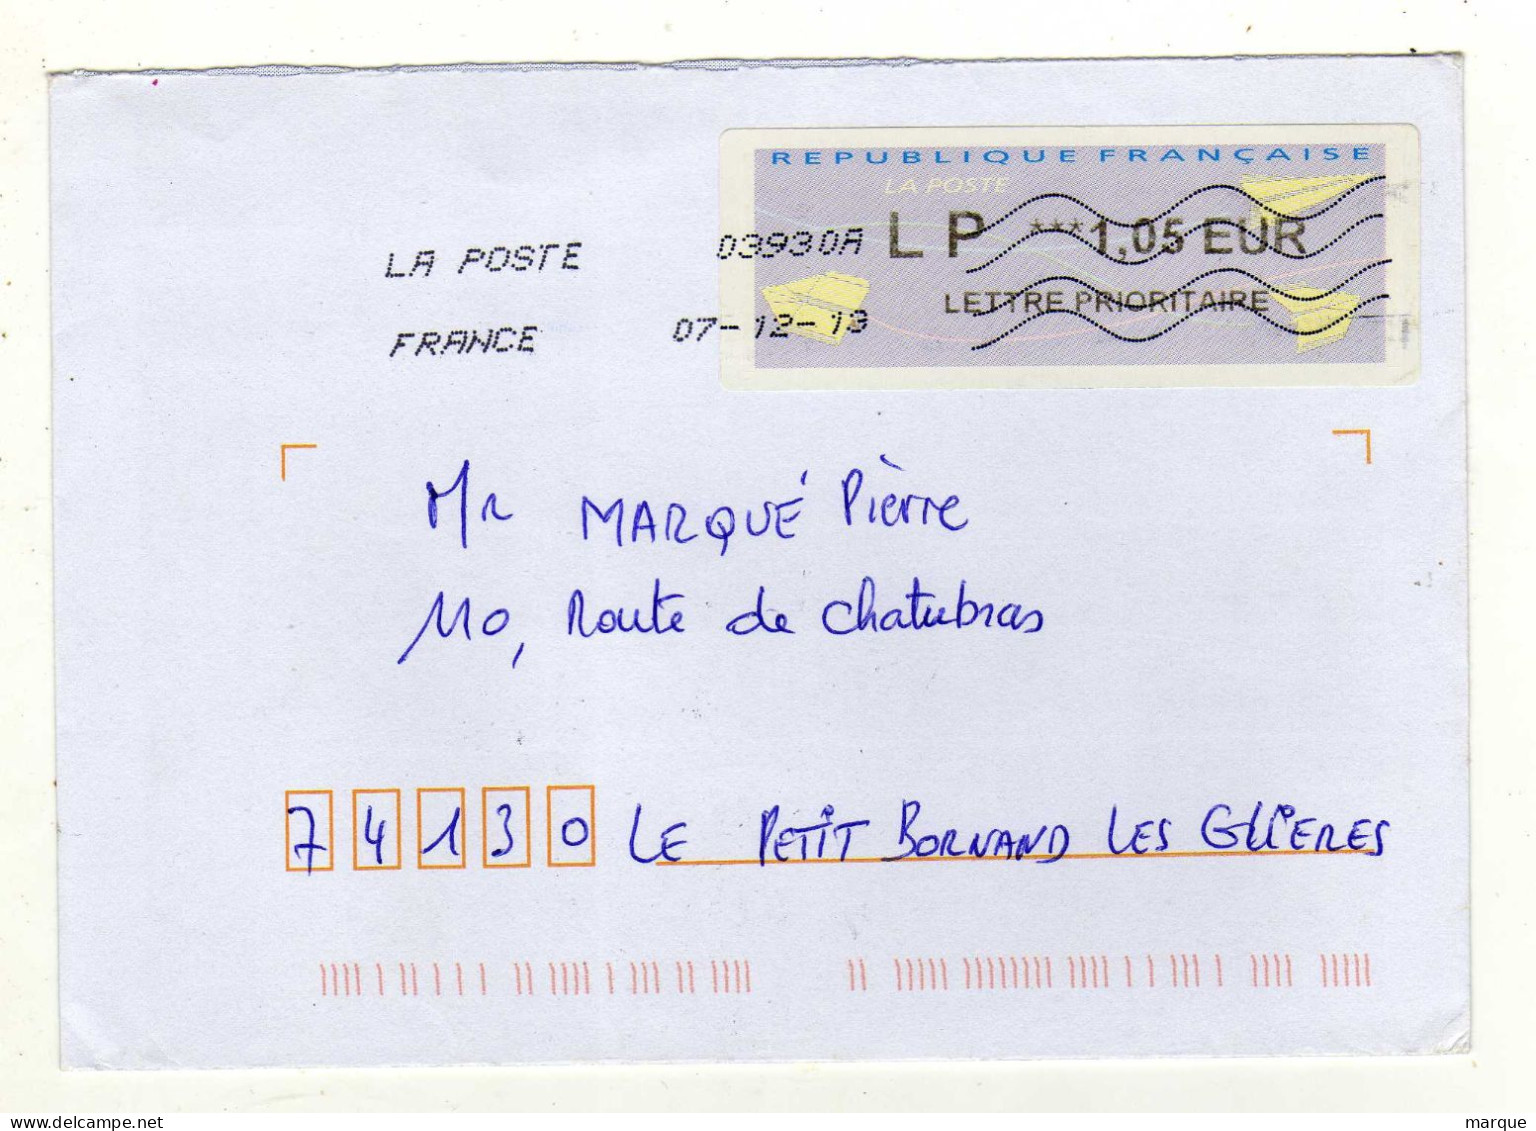 REPUBLIQUE FRANÇAISE
LA POSTE
LA POSTE 03930A L P ***1,05 EUR
LETTRE PRIORITAIRE
FRANCE 07-12-13
Mr MARQUÉ Pièrre
110, Route de Chatubras
74130 LE PETIT BORNAND LES GLIERES
marque